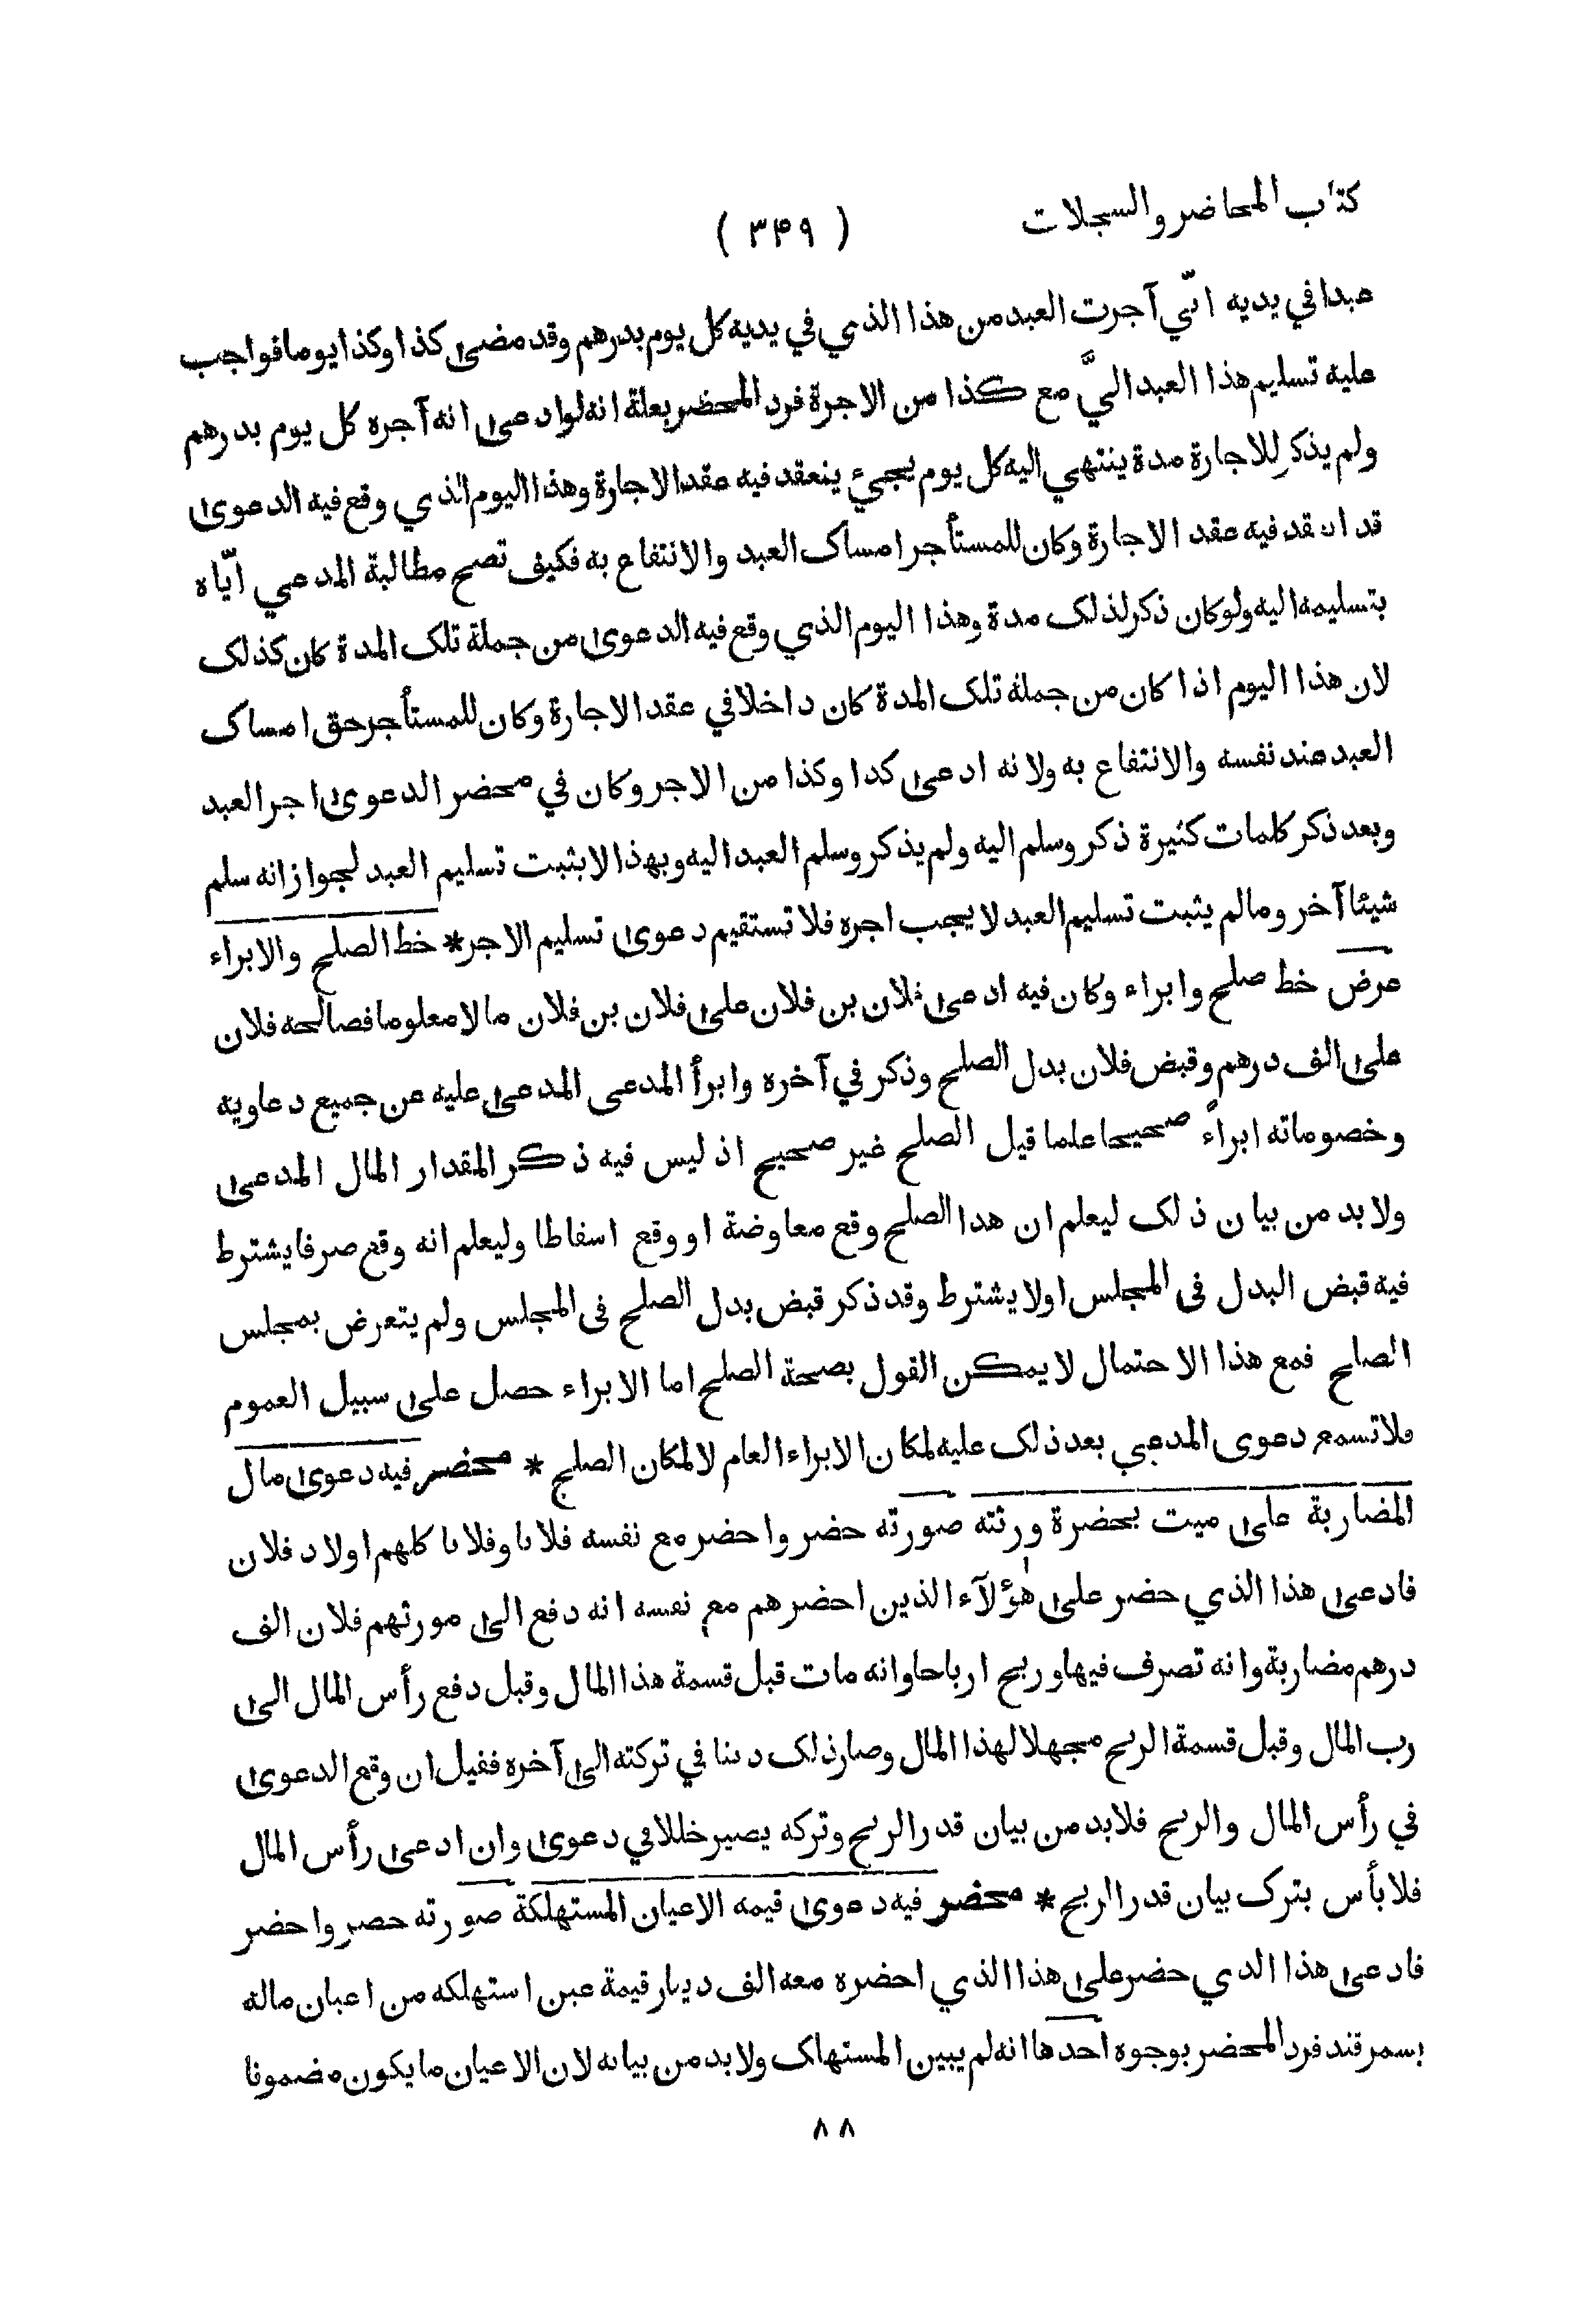 كتاب المحاضر والسجلات
( ٣٤٩ )
عبدا في يديه انّي آجرت العبد من هذا الذي في يديه كل يوم بدرهم وقد مضى كذا وكذا يوما فواجب
عليه تسليم هذا العبد اليَّ مع كذا من الاجرة فرد المحضر بعلة انه لوادعى انه آجره كل يوم بدرهم
ولم يذكر للاجارة مدة ينتهي اليه كل يوم يجيء ينعقد فيه عقد الاجارة وهذا اليوم الذي وقع فيه الدعوى
قد انعقد فيه عقد الاجارة وكان للمستأجر امساك العبد والانتفاع به فكيف تصح مطالبة المدعي ايّاه
بتسليمه اليه ولوكان ذكر لذلك مدة وهذا اليوم الذي وقع فيه الدعوى من جملة تلك المدة كان كذلك
لان هذا اليوم اذا كان من جملة تلك المدة كان داخلا في عقد الاجارة وكان للمستأجر حق امساك
العبد عند نفسه والانتفاع به ولانه ادعى كدا وكذا من الاجر وكان في محضر الدعوى اجر العبد
وبعد ذكر كلمات كثيرة ذكر وسلم اليه ولم يذكر وسلم العبد اليه وبهذا لايثبت تسليم العبد لجواز انه سلم
شيئا آخر ومالم يثبت تسليم العبد لا يجب اجره فلا تستقيم دعوى تسليم الاجر * خط الصلح والابراء
عرض خط صلح وابراء وكان فيه ادعى فلان بن فلان على فلان بن فلان مالا معلوما فصالحه فلان
على الف درهم وقبض فلان بدل الصلح وذكر في آخره وابرأ المدعى المدعى عليه عن جميع دعاويه
وخصوماته ابراءً صحيحا علما قيل الصلح غير صحيح اذ ليس فيه ذكر المقدار المال المدعى
ولابد من بيان ذلك ليعلم ان هدا الصلح وقع معاوضة او وقع اسفاطا وليعلم انه وقع صرفا يشترط
فيه قبض البدل فى المجلس اولا يشترط وقد ذكر قبض بدل الصلح فى المجلس ولم يتعرض بمجلس
الصلح فمع هذا الاحتمال لايمكن القول بصحة الصلح اما الابراء حصل على سبيل العموم
فلا تسمع دعوى المدعي بعد ذلك عليه لمكان الابراء العام لالمكان الصلح * محضر فيه دعوى مال
المضاربة على ميت بحضرة ورثته صورته حضر واحضر مع نفسه فلانا وفلانا كلهم اولاد فلان
فادعى هذا الذي حضر على هٰؤلآء الذين احضرهم مع نفسه انه دفع الى مورثهم فلان الف
درهم مضاربة وانه تصرف فيها وربح ارباحا وانه مات قبل قسمة هذا المال وقبل دفع رأس المال الى
رب المال وقبل قسمة الربح مجهلا لهذا المال وصار ذلك دينا في تركته الى آخره فقيل ان وقع الدعوى
في رأس المال والربح فلابد من بيان قدر الربح وتركه يصير خللا في دعوى وان ادعى رأس المال
فلا بأس بترك بيان قدر الربح * محضر فيه دعوى قيمه الاعيان المستهلكة صورته حضر واحضر
فادعى هذا الدي حضر على هذا الذي احضره معه الف دينار قيمة عين استهلكه من اعيان ماله
بسمرقند فرد المحضر بوجوه احدها انه لم يبين المستهلك ولابد من بيانه لان الاعيان ما يكون مضمونا
٨٨